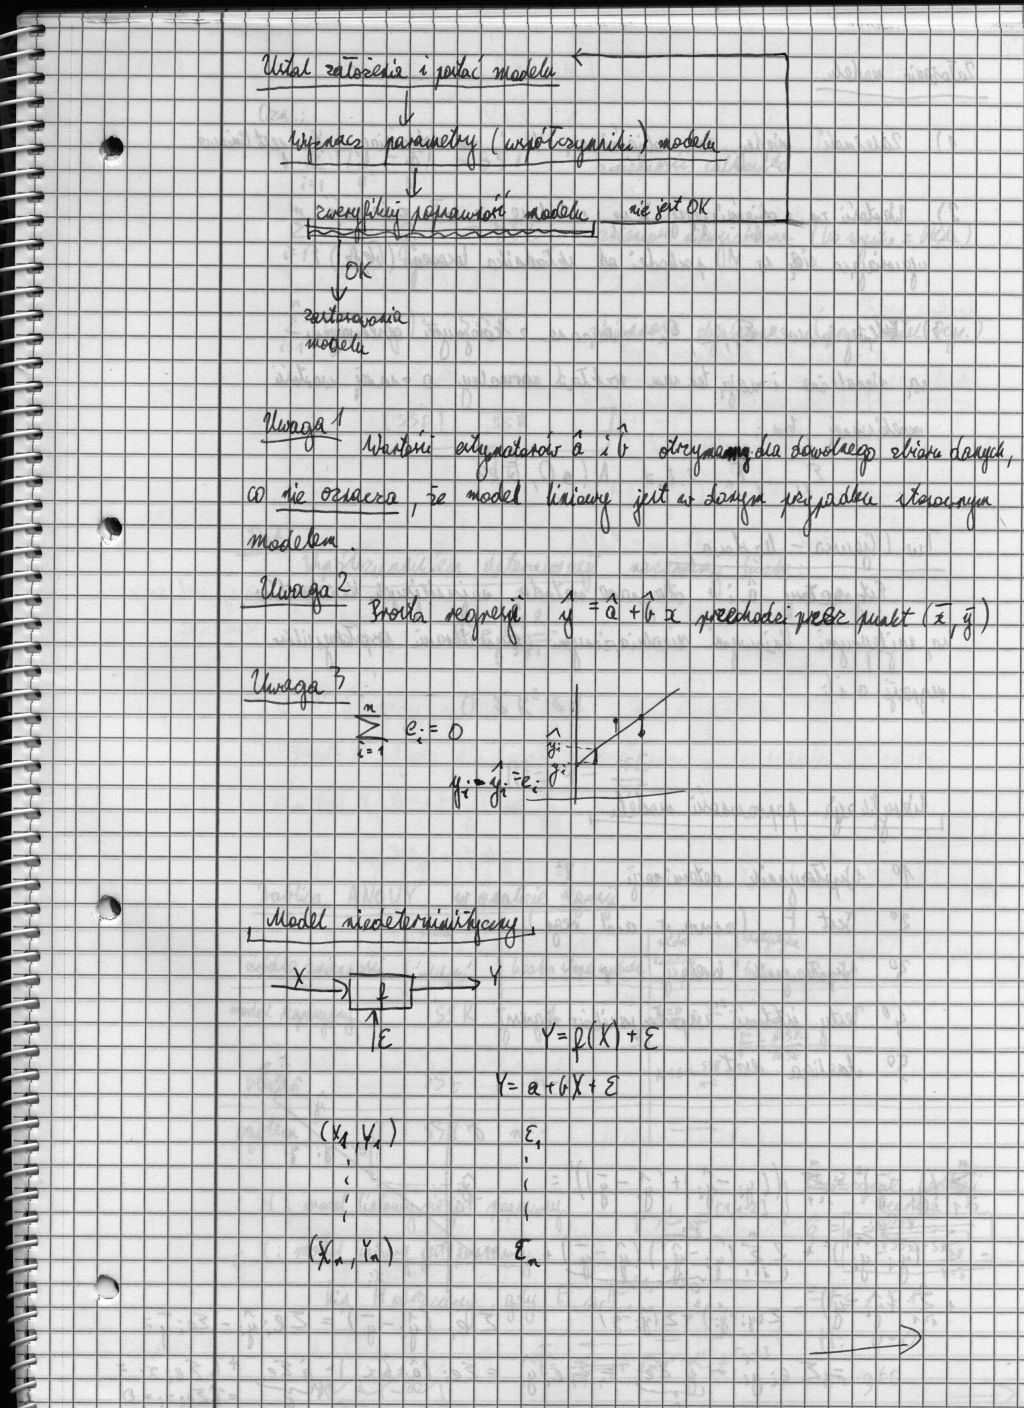 Ustal założenia i postać modelu
Wyznacz parametry (współczynniki) modelu
zweryfikuj poprawność modelu nie jest OK
OK
zastosowania
modelu
Uwaga 1
Wartości estymatorów â i b̂ otrzymamy dla dowolnego zbioru danych,
co nie oznacza, że model liniowy jest w danym przypadku stosownym
modelem.
Uwaga 2
Prosta regresji ŷ = â + b̂ x przechodzi przez punkt (x̄, ȳ)
Uwaga 3
n
∑ e_i = 0
i=1
ŷ_i
y_i
y_i - ŷ_i = e_i
Model niedeterministyczny
X f Y
ε
Y = f(X) + ε
Y = a + bX + ε
(X_1, Y_1) ε_1
(X_n, Y_n) ε_n